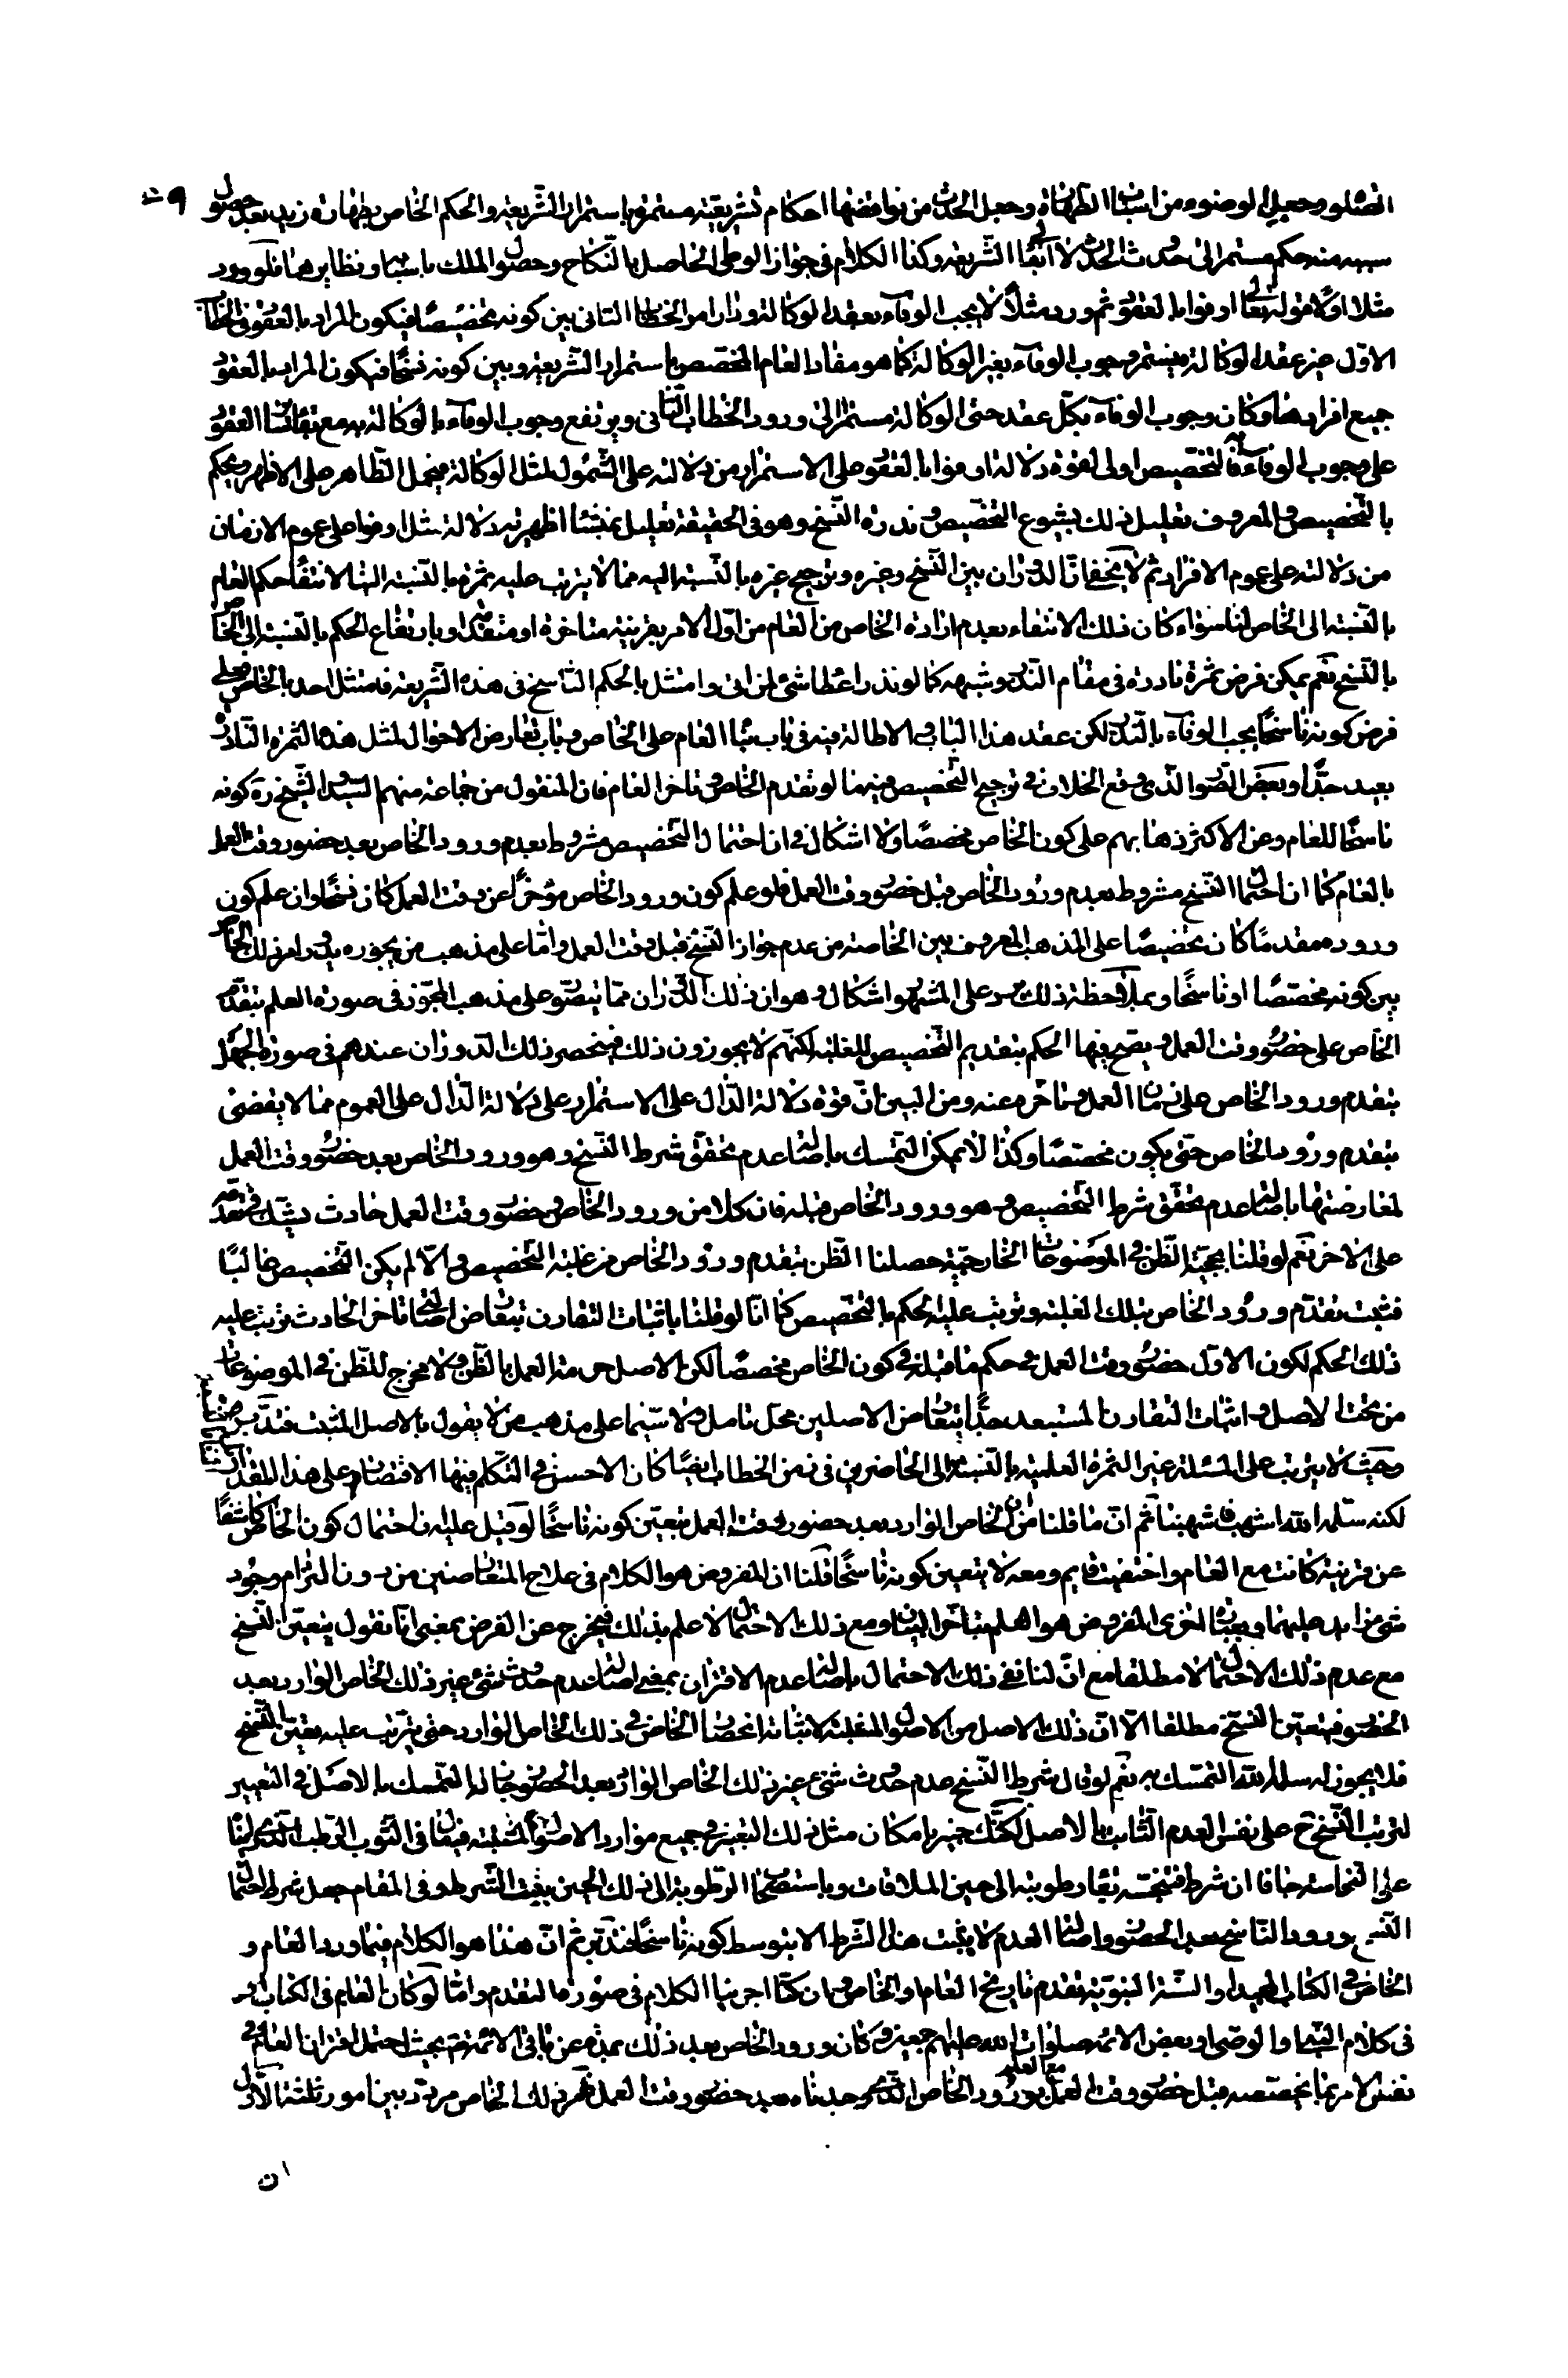 الصلوة وجعل الوضوء من اسباب الطهارة وجعل الحدث من نواقضها احكام تشريعية مستمرة باستمرار الشريعة والحكم الخاص بطهارة زيد بعد حصول
سببه منه حكم مستمر الى حدوث الحدث لا ابقاء الشريعة وكذا الكلام في جواز الوطى الحاصل بالنكاح وحصول الملك باسبابها ونظايرهما فلو ورد
مثلا اولا قوله تعالى اوفوا بالعقود ثم ورد مثلا لا يجب الوفاء بعقد الوكالة ودار امر الخطاب الثاني بين كونه تخصيصا فيكون المراد بالعقود في الخطاب
الاول غير عقد الوكالة فيستمر وجوب الوفاء بغير الوكالة كما هو مفاد العام المخصص باستمرار الشريعة وبين كونه نسخا فيكون المراد بالعقود
جميع افرادها وكان وجوب الوفاء بكل عقد حتى الوكالة مستمرا الى ورود الخطاب الثاني ويرتفع وجوب الوفاء بالوكالة به مع بقاء ساير العقود
على وجوب الوفاء به فالتخصيص اولى لقوة دلالة اوفوا بالعقود على الاستمرار من دلالته على الشمول لمثل الوكالة فيحمل الظاهر على الاظهر ويحكم
بالتخصيص والمعروف تعليل ذلك بشيوع التخصيص وندرة النسخ وهو في الحقيقة تعليل بمنشأ اظهرية دلالة مثل اوفوا على عموم الازمان
من دلالته على عموم الافراد ثم لا يخفى ان الدوران بين النسخ وغيره وترجيح غيره بالنسبة اليه مما لا يترتب عليه ثمرة بالنسبة الينا لانتفاء حكم العام
بالنسبة الى الخاص لنا سواء كان ذلك الانتفاء بعدم ارادة الخاص من العام من اول الامر بقرينة متاخرة او متقدمة او بارتفاع الحكم بالنسبة الى الخاص
بالنسخ نعم يمكن فرض ثمرة نادرة في مقام النذر وشبهه كما لو نذر اعطاء شئ لمن اتى وامتثل بالحكم الناسخ في هذه الشريعة فامتثل احد بالخاص فعلى
فرض كونه ناسخا يجب الوفاء بالنذر لكن عقد هذا الباب والاطالة فيه في باب بناء العام على الخاص وباب تعارض الاحوال لمثل هذه الثمرة النادرة
بعيد جدا وبعض الصور الذي وقع الخلاف في ترجيح التخصيص فيهما لو تقدم الخاص وتاخر العام فان المنقول من جماعة منهم السيد والشيخ ره كونه
ناسخا للعام وعن الاكثر ذهابهم على كون الخاص مخصصا ولا اشكال في ان احتمال التخصيص مشروط بعدم ورود الخاص بعد حضور وقت العمل
بالعام كما ان احتمال النسخ مشروط بعدم ورود الخاص قبل حضور وقت العمل فلو علم كون ورود الخاص مؤخرا عن وقت العمل كان نسخا وان علم كون
وروده مقدما كان تخصيصا على المذهب المعروف بين الخاصة من عدم جواز النسخ قبل وقت العمل واما على مذهب من يجوزه يدور امر ذلك الخاص
بين كونه مخصصا او ناسخا وبملاحظة ذلك يرد على المشهور اشكال وهو ان ذلك الدوران مما يتصور على مذهب المجوز في صورة العلم بتقدم
الخاص على حضور وقت العمل ويصح فيها الحكم بتقديم التخصيص للغلبة لكنهم لا يجوزون ذلك فينحصر ذلك الدوران عندهم في صورة الجهل
بتقدم ورود الخاص على زمان العمل وتاخره عنه ومن البين ان قوة دلالة الدال على الاستمرار على دلالة الدال على العموم مما لا يقضي
بتقدم ورود الخاص حتى يكون مخصصا وكذا لا يمكن التمسك باصالة عدم تحقق شرط النسخ وهو ورود الخاص بعد حضور وقت العمل
لمعارضتها باصالة عدم تحقق شرط التخصيص وهو ورود الخاص قبله فان كلا من ورود الخاص وحضور وقت العمل حادث يشك في تقدمه
على الاخر نعم لو قلنا بحجية الظن في الموضوعات الخارجية حصل لنا الظن بتقدم ورود الخاص من غلبة التخصيص والا لم يكن التخصيص غالبا
فثبت تقدم ورود الخاص بتلك الغلبة وترتب عليه الحكم بالتخصيص كما انا لو قلنا باثبات التقارن بتعارض اصالتى تاخر الحادث ترتب عليه
ذلك الحكم لكون الاول حضور وقت العمل في حكم ما قبله في كون الخاص مخصصا لكن الاصل حرمة العمل بالظن ولا مخرج للظن في الموضوعات
من تحت الاصل واثبات التقارن المستبعد جدا بتعارض الاصلين محل تامل ولا سيما على مذهب من لا يقول بالاصل المثبت فتدبر
وحيث لا يترتب على المسئلة غير الثمرة العلمية بالنسبة الى الحاضرين في زمن الخطاب ايضا كان الاحسن في التكلم فيها الاقتصار على هذا المقدار
لكنه سلمه الله اشهب فاشهبنا ثم ان ما قلنا من ان الخاص الوارد بعد حضور وقت العمل يتعين كونه ناسخا لو قيل عليه ان احتمال كون الخاص كاشفا
عن قرينة كانت مع العام واختفيت قايم ومعه لا يتعين كونه ناسخا قلنا ان المفروض هو الكلام في علاج المتعارضين من دون التزام وجود
شئ زايد عليهما وبعبارة اخرى المفروض هو العلم بتاخر البيان ومع ذلك الاحتمال لا علم بذلك فيخرج عن الفرض بمعنى انا نقول يتعين النسخ
مع عدم ذلك الاحتمال لا مطلقا مع ان لنا نفى ذلك الاحتمال باصالة عدم الاقتران بمعنى اصالة عدم حدوث شئ غير ذلك الخاص الوارد بعد
الحضور فيتعين النسخ مطلقا الا ان ذلك الاصل من الاصول المثبتة لاثباته انحصار الخاص في ذلك الخاص الوارد حتى يترتب عليه تعين النسخ
فلا يجوز له سلمه الله التمسك به نعم لو قال شرط النسخ عدم حدوث شئ غير ذلك الخاص الوارد بعد الحضور جاز له التمسك بالاصل في التعبير
لترتب النسخ ح على نفس العدم الثابت بالاصل لكنك خبير بامكان مثل ذلك التعبير في جميع موارد الاصول المثبتة فيقال في الثوب الرطب
على النجاسة جافا ان شرط تنجسه بقاء رطوبته الى حين الملاقات وباستصحاب الرطوبة الى ذلك الحين يثبت الشرط وفي المقام جعل شرط احتمال
النسخ ورود الناسخ بعد الحضور واصالة العدم لا يثبت هذا الشرط الا بتوسط كونه ناسخا فتدبر ثم ان هذا هو الكلام فيما ورد العام و
الخاص في الكتاب المجيد او السنة النبوية بتقدم تاريخ العام او الخاص وان كنا اجرينا الكلام في صورة التقدم واما لو كان العام في الكتاب او
في كلام النبي او الوصي او بعض الائمة صلوات الله عليهم اجمعين وكان ورود الخاص بعد ذلك بمدة عن باقي الائمة ع بحيث احتمل اقتران العام في
نفس الامر بما يخصصه قبل حضور وقت العمل مع العلم بورود الخاص الذي وجدناه بعد حضور وقت العمل فامر ذلك الخاص مردد بين امور ثلثة الاول
ان